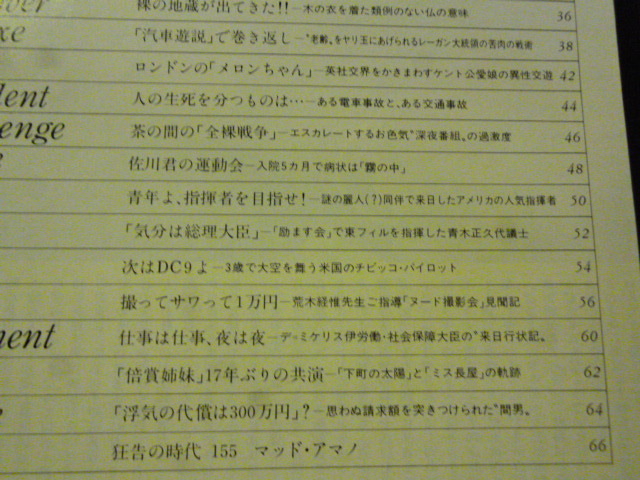 裸の地蔵が出てきた!!―木の衣を着た類例のない仏の意味 36
「汽車遊説」で巻き返し―"老齢"をヤリ玉にあげられるレーガン大統領の苦肉の戦術 38
ロンドンの「メロンちゃん」―英社交界をかきまわすケント公愛娘の異性交遊 42
人の生死を分つものは…―ある電車事故と、ある交通事故 44
enge 茶の間の「全裸戦争」―エスカレートするお色気"深夜番組"の過激度 46
佐川君の運動会―入院5カ月で病状は「霧の中」 48
青年よ、指揮者を目指せ!―謎の麗人(?)同伴で来日したアメリカの人気指揮者 50
「気分は総理大臣」―「励ます会」で東フィルを指揮した青木正久代議士 52
次はDC9よ―3歳で大空を舞う米国のチビッコ・パイロット 54
撮ってサワって1万円―荒木経惟先生ご指導「ヌード撮影会」見聞記 56
ment 仕事は仕事、夜は夜―デ=ミケリス伊労働・社会保障大臣の"来日行状記" 60
「倍賞姉妹」17年ぶりの共演―「下町の太陽」と「ミス長屋」の軌跡 62
「浮気の代償は300万円」?―思わぬ請求額を突きつけられた"間男" 64
狂告の時代 155 マッド・アマノ 66